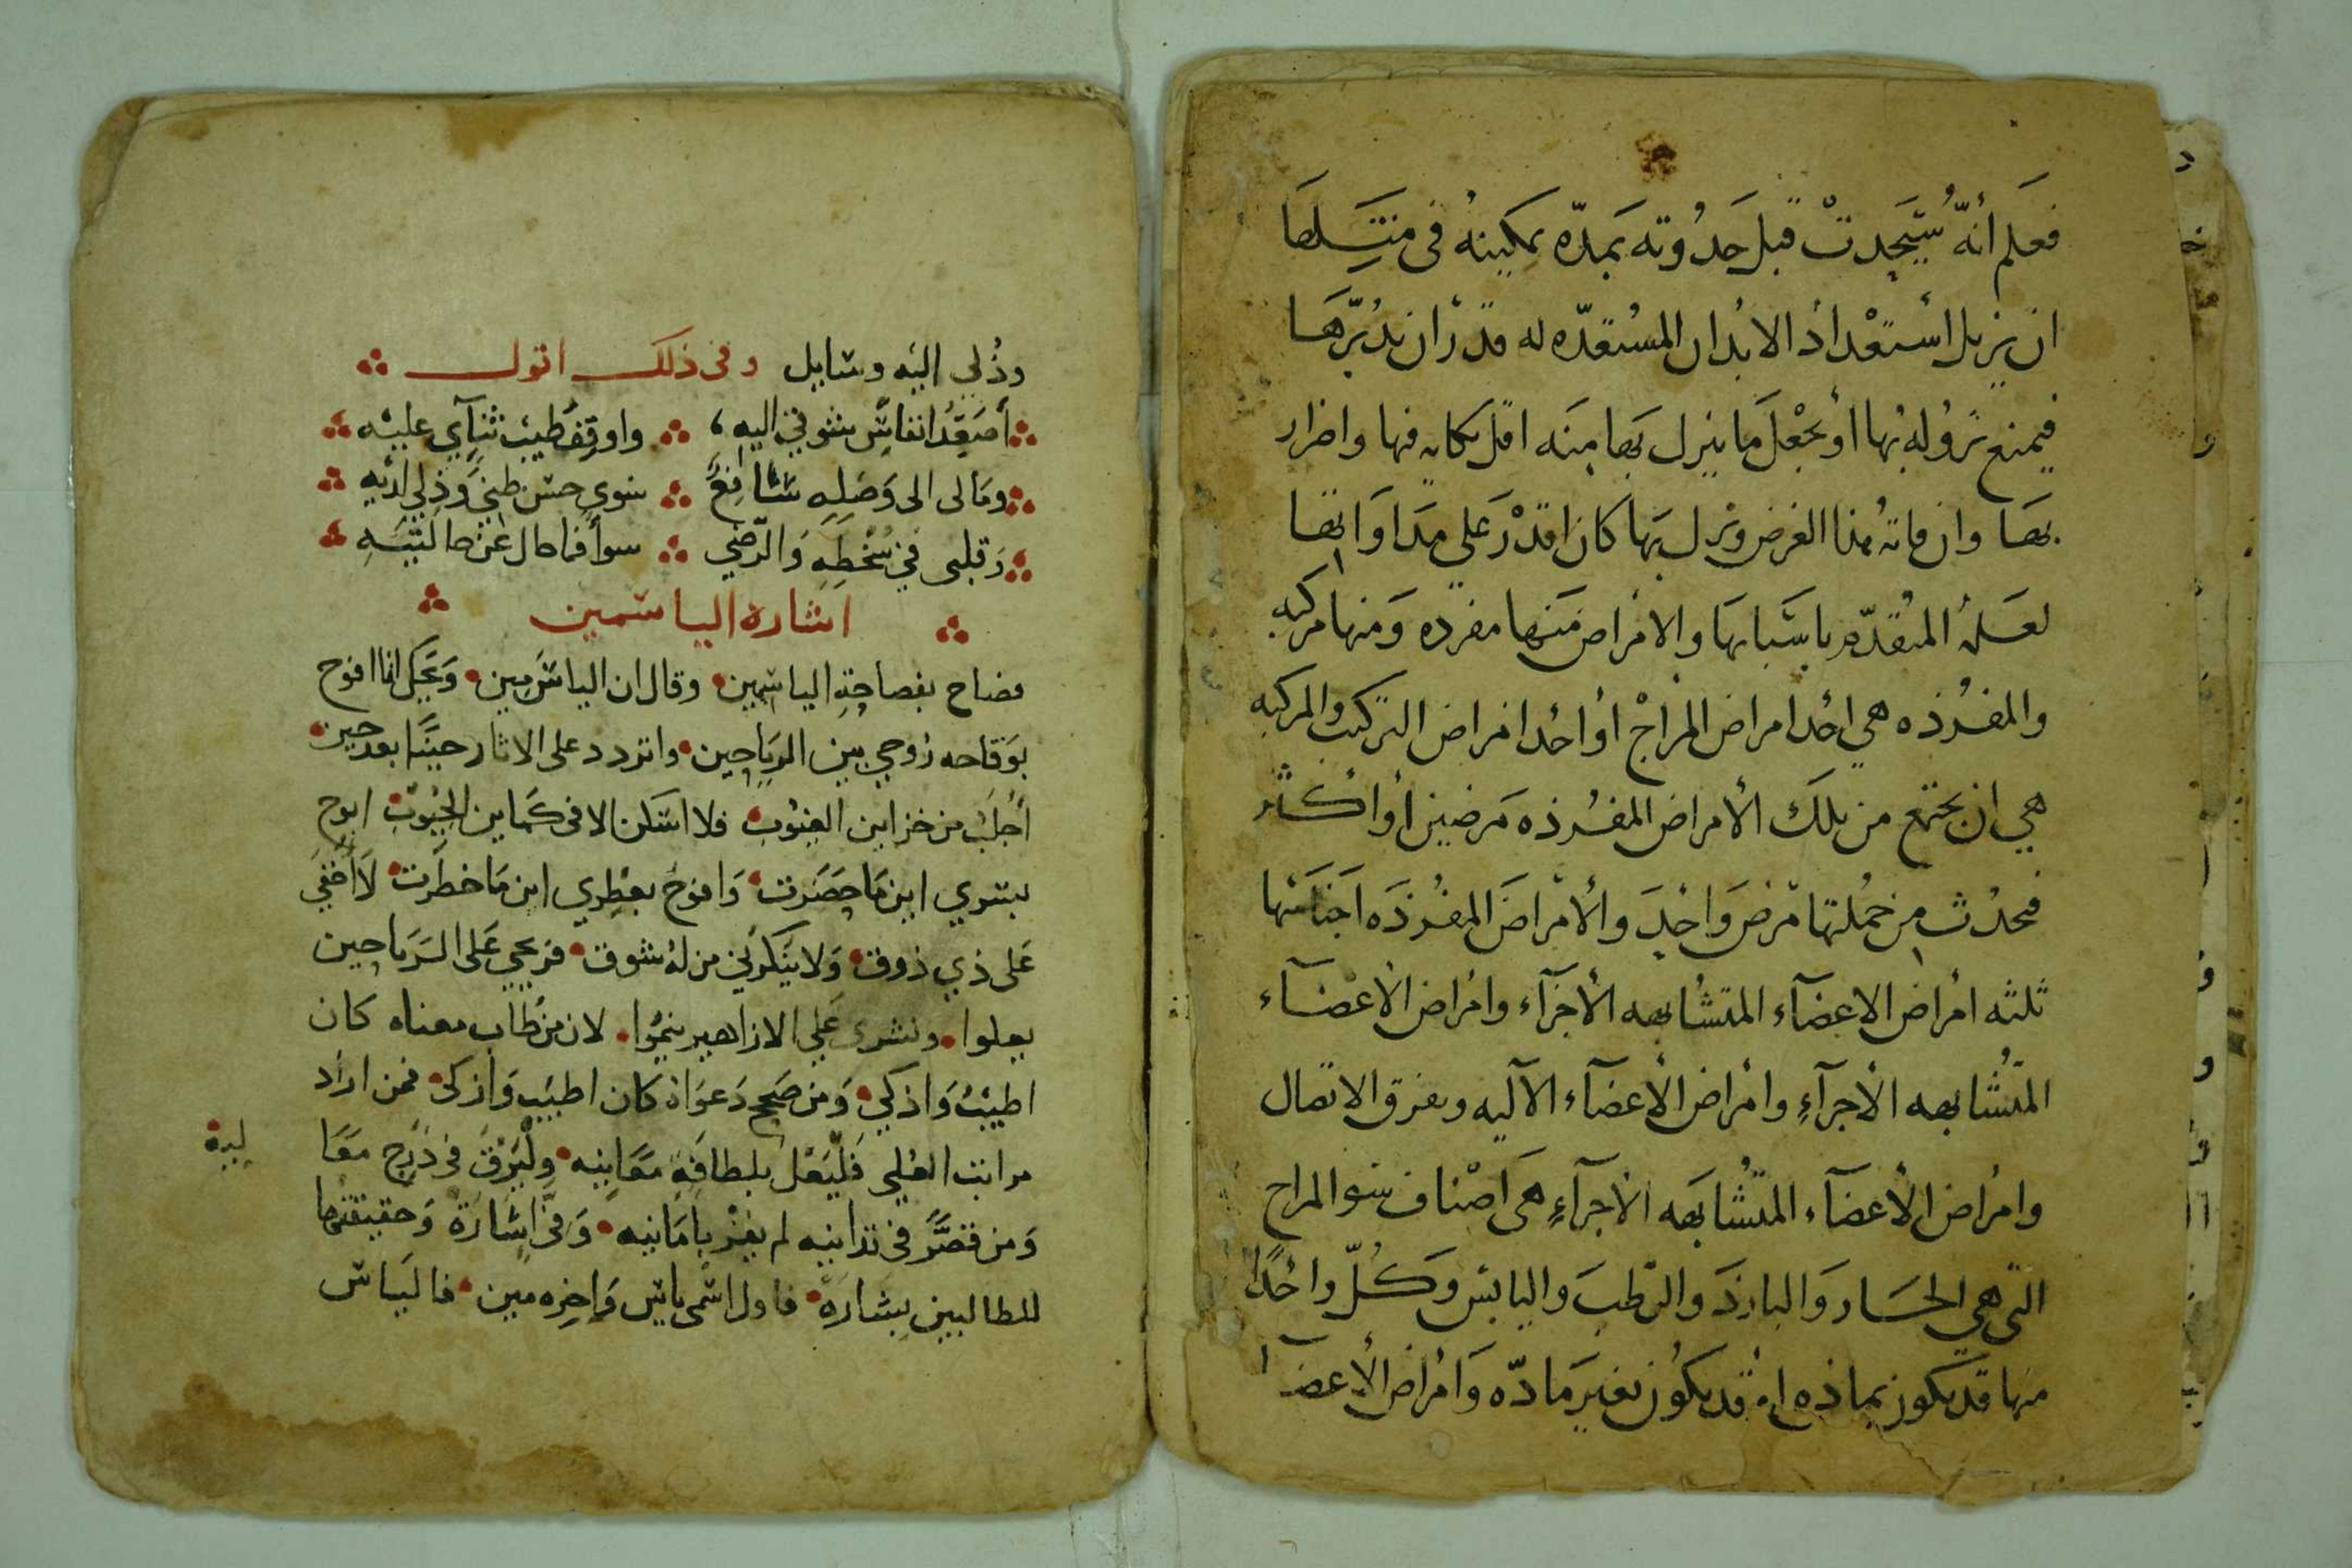 فعلم أنّه سيحدث قبل حدوثه بمدّه يمكينه في منتسلها
ان يزيل استعداد الابدان المستعدّه له قدر ان يدبّرها
فيمنع نزوله بها أو يجعل ما ينزل بها منه اقل مكانه فيها واضرار
بها وان فاته هذا الغرض ونزل بها كان اقدر على مداواتها
لعلمه المتقدّم باسبابها والامراض منها مفرده ومنها مركبه
والمفرده هي احد امراض المزاج أو احد امراض التركيب والمركبه
هي ان يجتمع من تلك الأمراض المفرده مرضين أو أكثر
فيحدث من جملتها مرض واحد والأمراض المفرده اجناسها
ثلثه امراض الاعضآء المتشابهه الأجزآء وامراض الاعضآء
المتشابهه الأجزآء وأمراض الأعضآء الآليه وتفرق الاتصال
وامراض الأعضآء المتشابهه الأجزآء هي اصناف سو المزاج
التي هي الحار والبارد والرطب واليابس وكلّ واحدًا
منها قد يكون بماده او قد يكون بغير مادّه وامراض الأعضا
وذُلي اليه وسايل وفي ذلك اقول
أصعّد انفاس شوقي اليه واوقف طيب ثنآي عليه
وما لي الى وصله شافع سوى حسن ظني وذلي لديه
وقلبى في سخطه والرّضي سوأ فما حال عن حالتيه
اشارة الياسمين
فصاح بفصاحة الياسمين وقال ان الياس مين وعجل انا افوح
بوقاحه روحي بين الرياحين واتردد على الاثار حينًا بعد حين
أجلب من خزاين الغيوب فلا اسكن الا فى كماين الجيوب ابوح
بسري اين ما حضرت وافوح بعطري اين ما خطرت لا أخفي
على ذي ذوق ولا ينكرني من له شوق فريحي على الرياحين
يعلوا ونشرى علي الازاهير ينموا لان من طاب معناه كان
اطيب واذكي ومن صح دعواه كان اطيب وازكى فمن اراد
مراتب العلي فليعل بلطافة معانيه وليرق في درج معا
ليه
ومن قصّر في تدانيه لم يفز بامانيه وفي اشارة وحقيقتها
للطالبين بشارة فاول اسمى ياس واخره مين فالياس